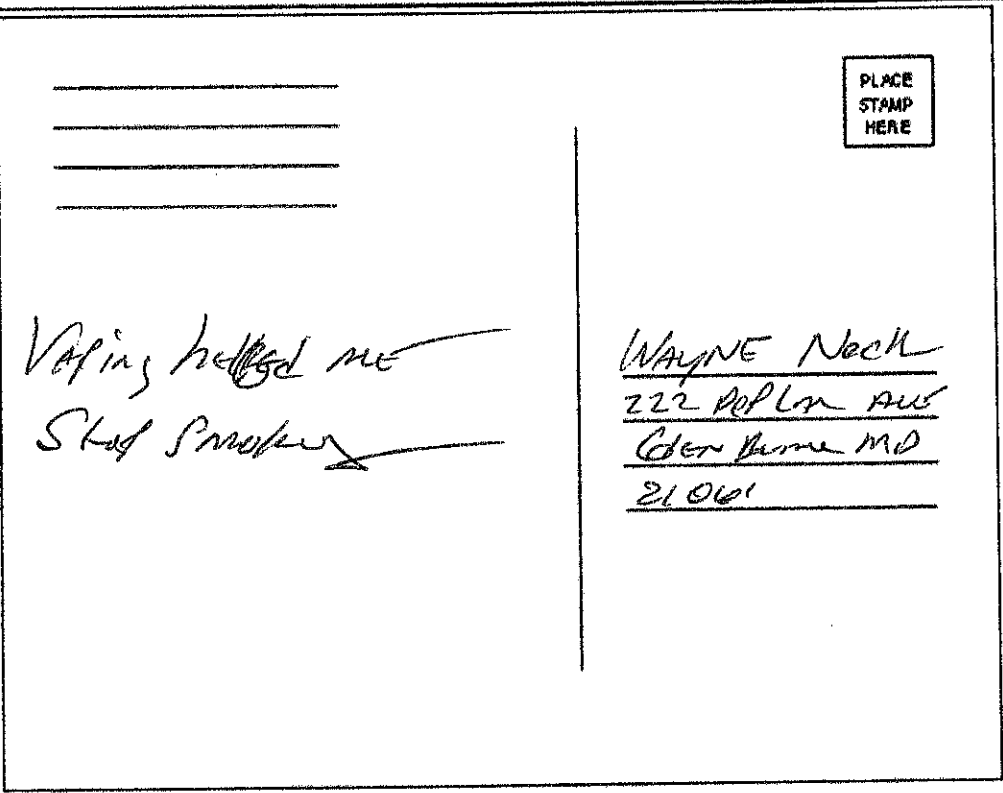 PLACE
STAMP
HERE
Vaping helped me
Stop Smoking
WAYNE Neck
222 Poplar Ave
Glen Burnie MD
21061